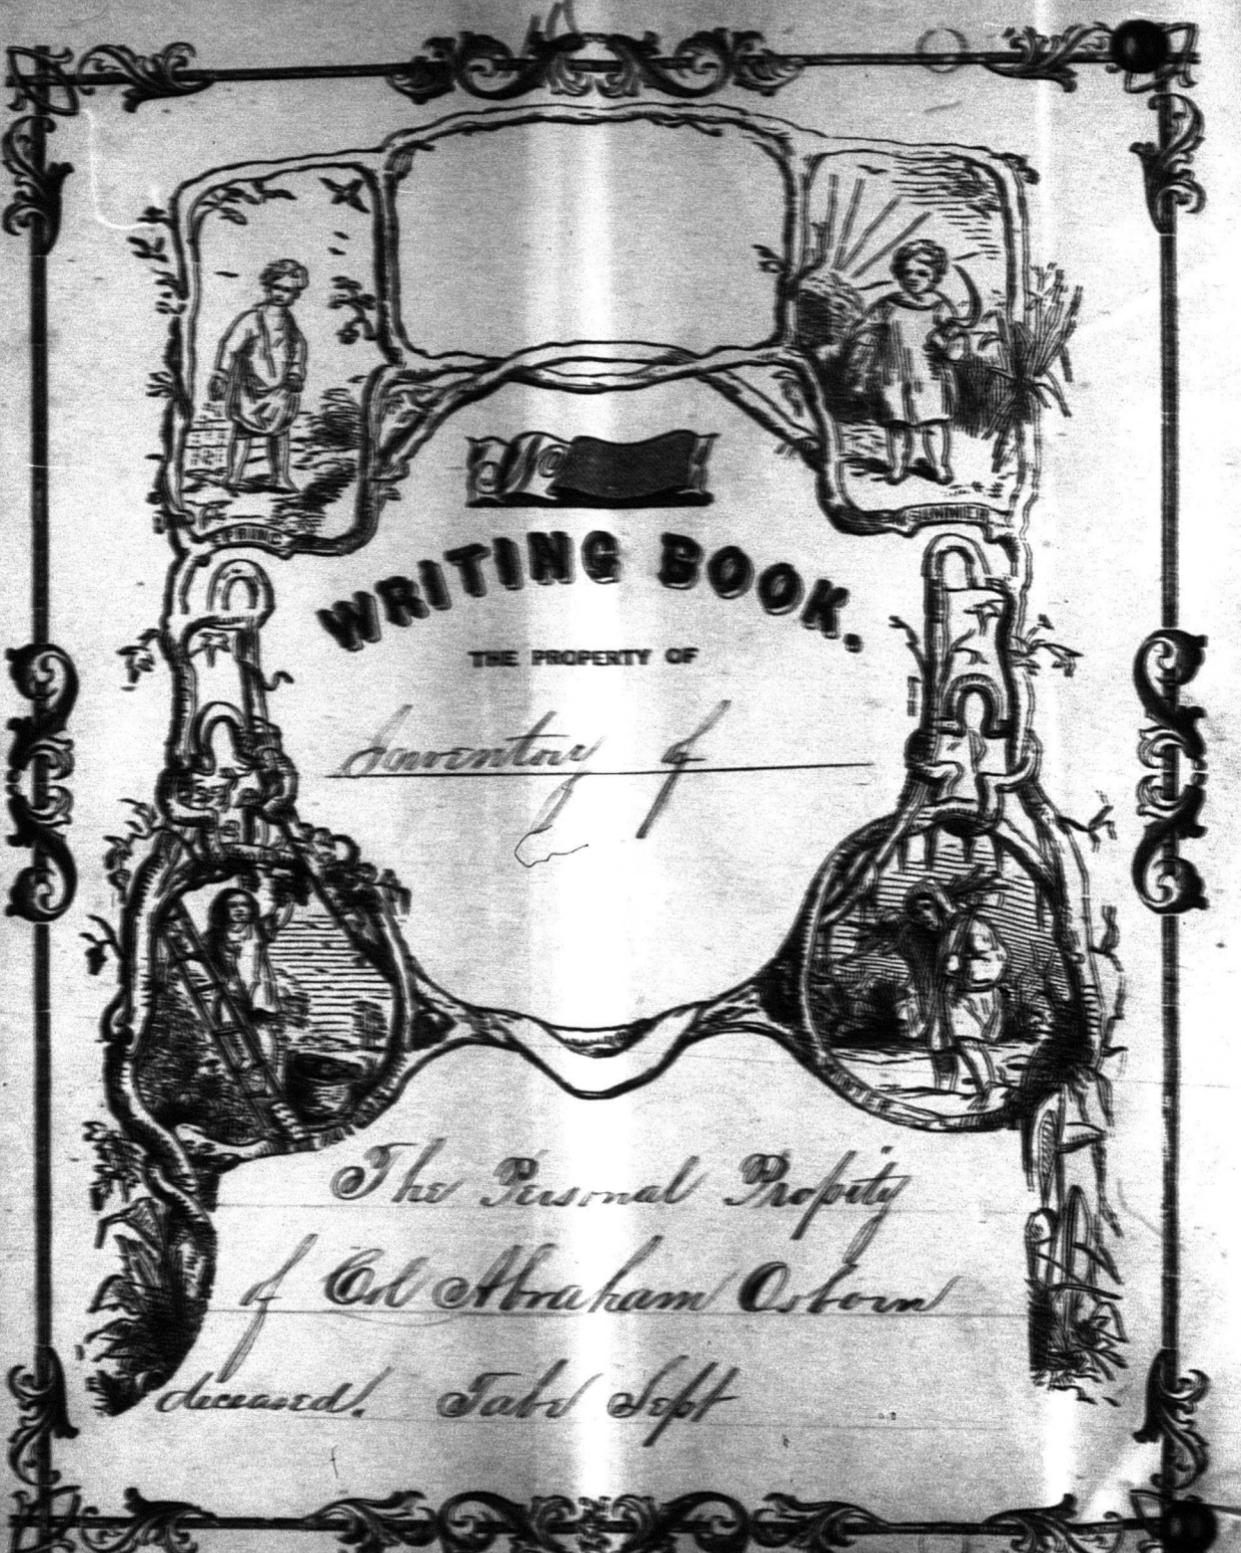 SPRING
SUMMER
WRITING BOOK.
THE PROPERTY OF
Inventory of
The Personal Property
of Col Abraham Osborn
deceased. Sept